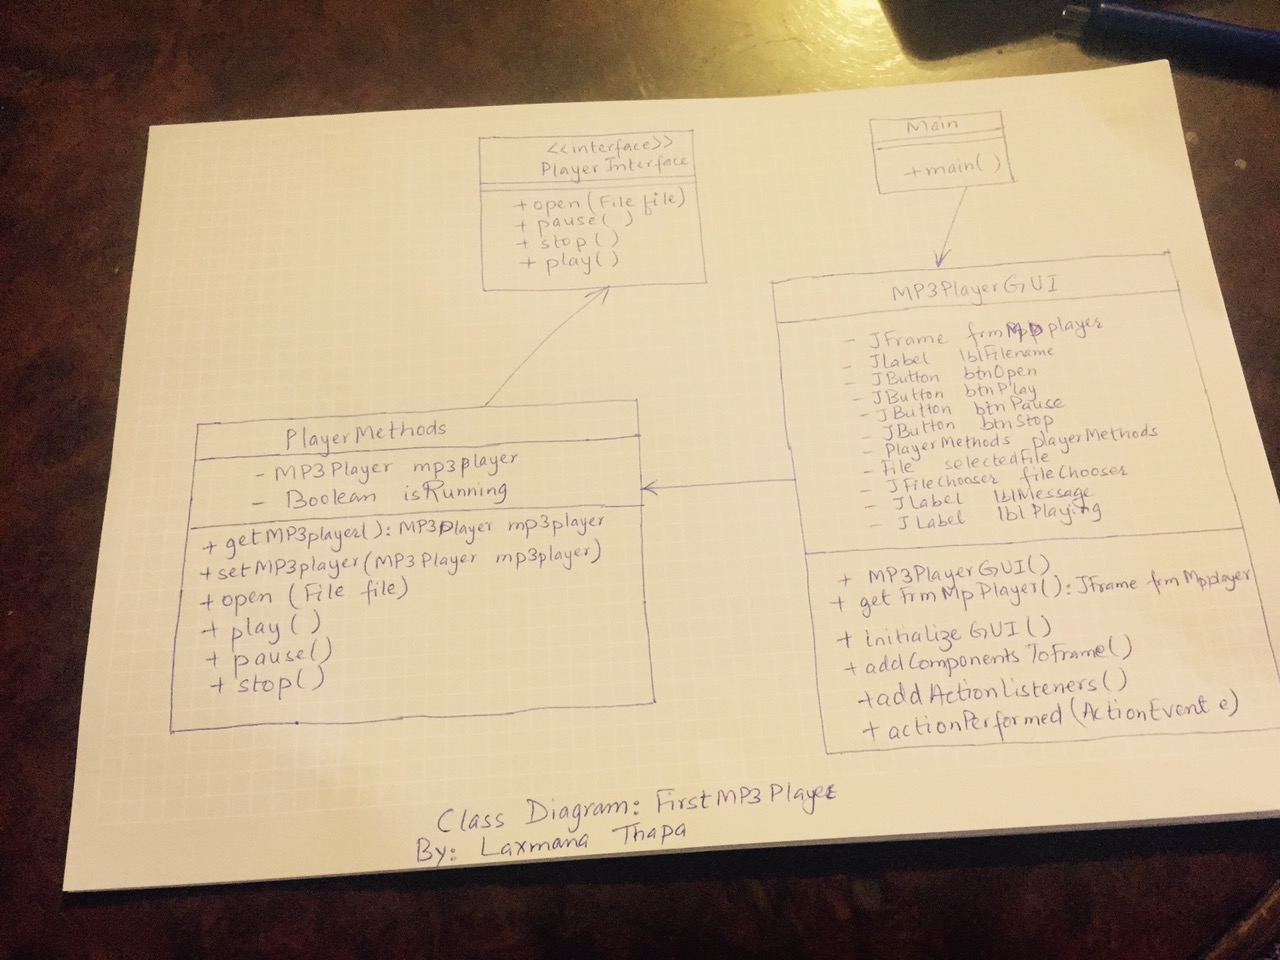 <<interface>>
PlayerInterface
+ open(File file)
+ pause( )
+ stop( )
+ play( )
Main
+ main( )
MP3PlayerGUI
- JFrame frm player
- JLabel lblFilename
- JButton btnOpen
- JButton btnPlay
- JButton btnPause
- JButton btnStop
- PlayerMethods playerMethods
- File selectedFile
- JFileChooser fileChooser
- JLabel lblMessage
- JLabel lblPlaying
+ MP3PlayerGUI()
+ getFrmMpPlayer(): JFrame frmMpplayer
+ initializeGUI()
+ addComponentsToFrame()
+ addActionListeners()
+ actionPerformed(ActionEvent e)
PlayerMethods
- MP3Player mp3player
- Boolean isRunning
+ getMP3player(): MP3Player mp3player
+ setMP3player(MP3Player mp3player)
+ open (File file)
+ play()
+ pause()
+ stop()
Class Diagram: FirstMP3Player
By: Laxmana Thapa